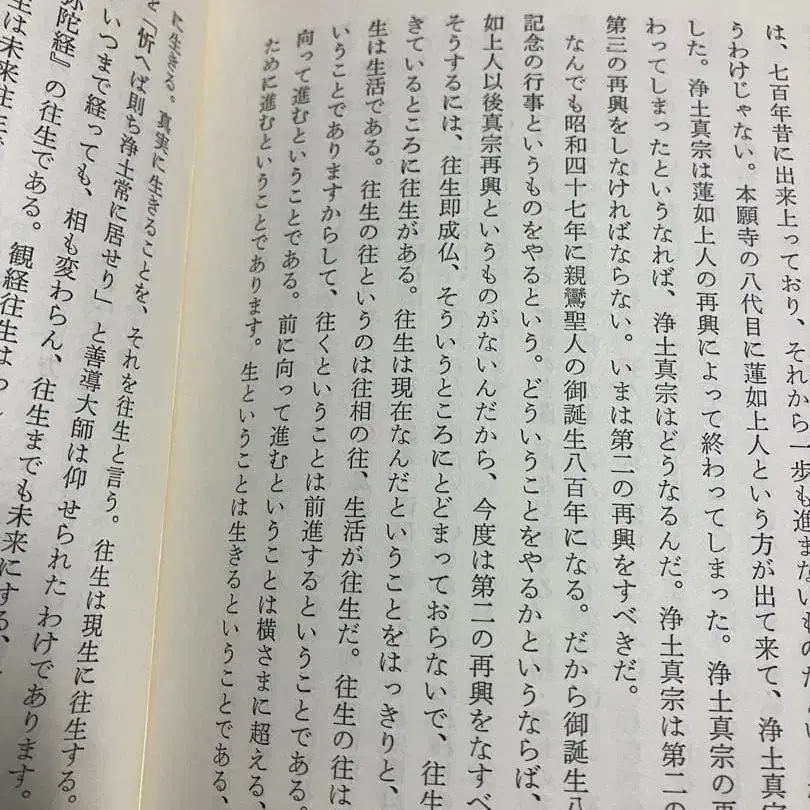 は、七百年昔に出来上っており、それから一歩も進まないものだ
うわけじゃない。本願寺の八代目に蓮如上人という方が出て来て、浄土
した。浄土真宗は蓮如上人の再興によって終わってしまった。浄土真宗の再
わってしまったというなれば、浄土真宗はどうなるんだ。浄土真宗は第二の
第三の再興をしなければならない。いまは第二の再興をすべきだ。
なんでも昭和四十七年に親鸞聖人の御誕生八百年になる。だから御誕生八
記念の行事というものをやるという。どういうことをやるかというならば、
如上人以後真宗再興というものがないんだから、今度は第二の再興をなすべ
そうするには、往生即成仏、そういうところにとどまっておらないで、往生
きているところに往生がある。往生は現在なんだということをはっきりと、
生は生活である。往生の往というのは往相の往、生活が往生だ。往生の往は
いうことでありますからして、往くということは前進するということである。
向って進むということである。前に向って進むということは横さまに超える、
ために進むということであります。生ということは生きるということである、
に生きる。真実に生きることを、それを往生と言う。往生は現生に往生する。
を「忻へば則ち浄土常に居せり」と善導大師は仰せられたわけであります。
いつまで経っても、相も変わらん、往生までも未来にする、
弥陀経』の往生である。観経往生は
生は未来往生で